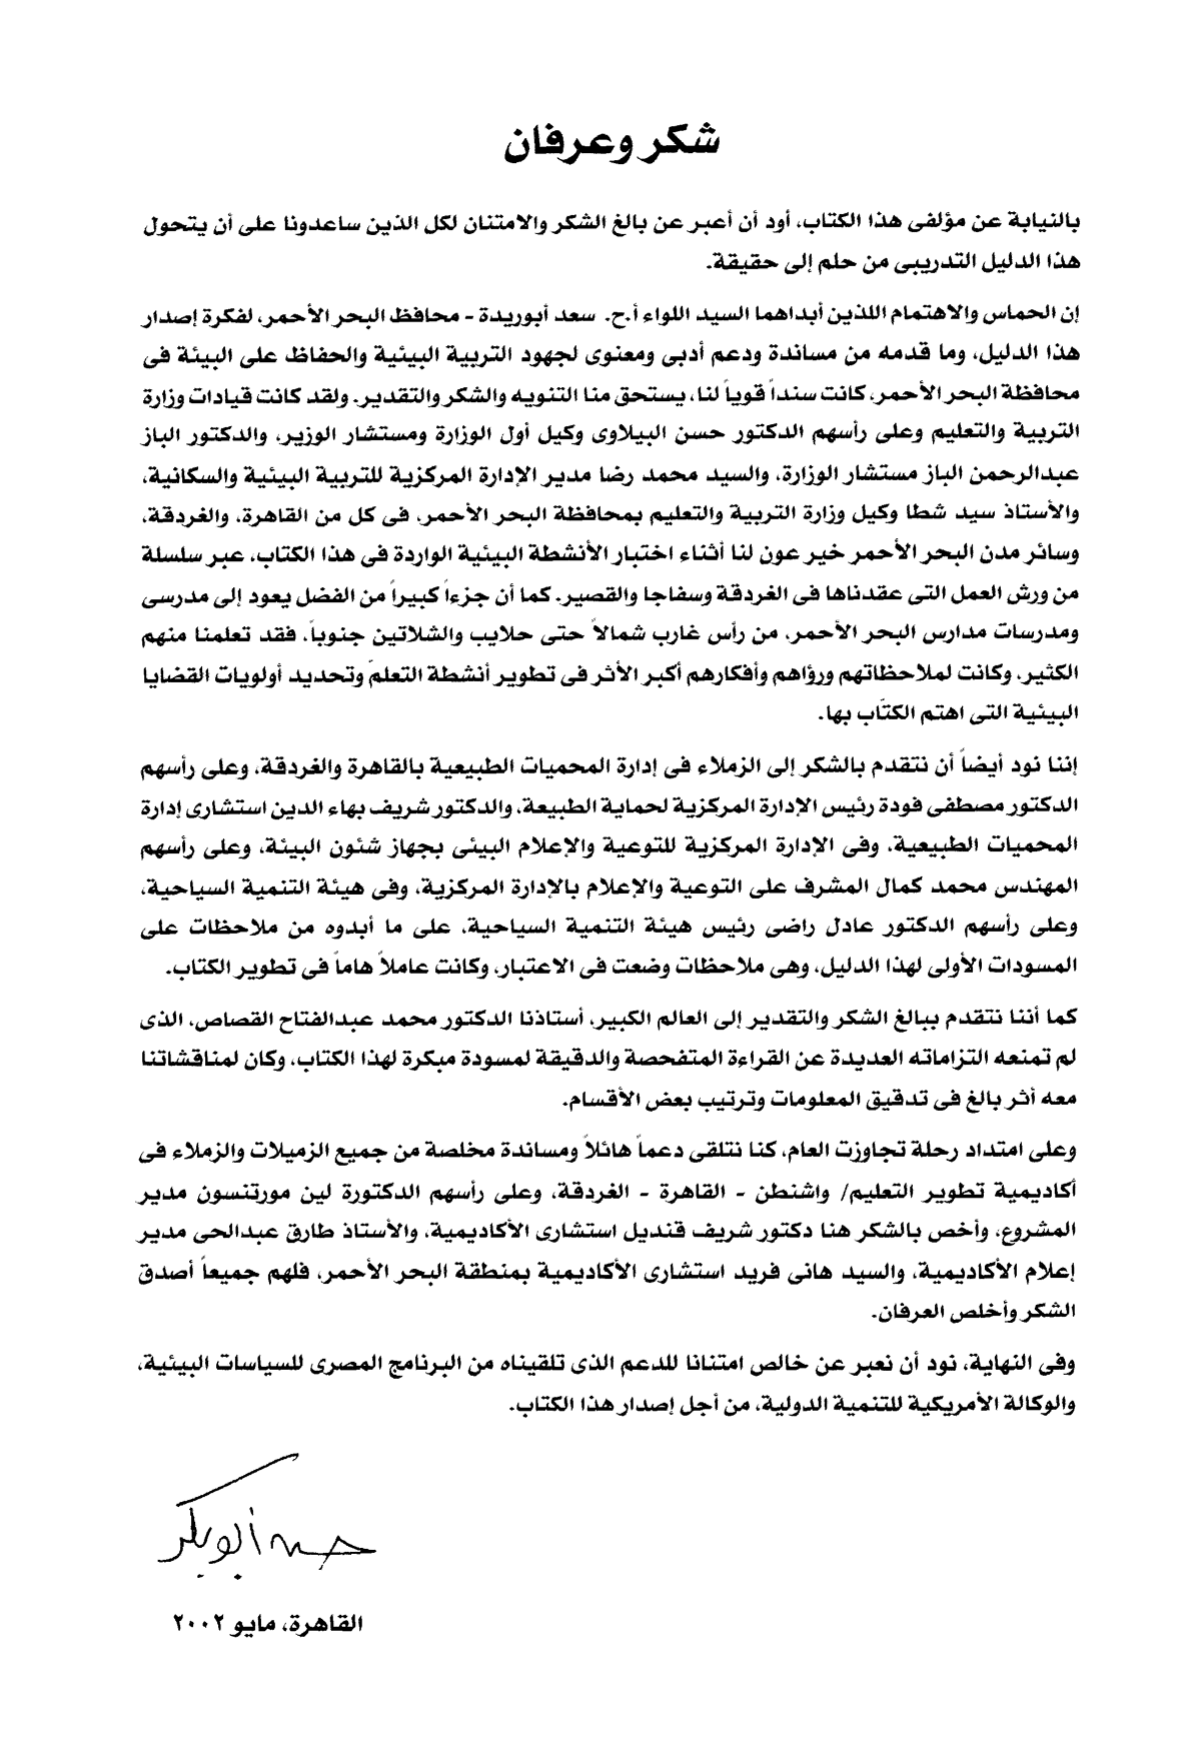 شكر وعرفان
بالنيابة عن مؤلفى هذا الكتاب، أود أن أعبر عن بالغ الشكر والامتنان لكل الذين ساعدونا على أن يتحول
هذا الدليل التدريبى من حلم إلى حقيقة.
إن الحماس والاهتمام اللذين أبداهما السيد اللواء أ.ح. سعد أبوريدة - محافظ البحر الأحمر، لفكرة إصدار
هذا الدليل، وما قدمه من مساندة ودعم أدبى ومعنوى لجهود التربية البيئية والحفاظ على البيئة فى
محافظة البحر الأحمر، كانت سنداً قوياً لنا، يستحق منا التنويه والشكر والتقدير. ولقد كانت قيادات وزارة
التربية والتعليم وعلى رأسهم الدكتور حسن البيلاوى وكيل أول الوزارة ومستشار الوزير، والدكتور الباز
عبدالرحمن الباز مستشار الوزارة، والسيد محمد رضا مدير الإدارة المركزية للتربية البيئية والسكانية،
والأستاذ سيد شطا وكيل وزارة التربية والتعليم بمحافظة البحر الأحمر، فى كل من القاهرة، والغردقة،
وسائر مدن البحر الأحمر خير عون لنا أثناء اختبار الأنشطة البيئية الواردة فى هذا الكتاب، عبر سلسلة
من ورش العمل التى عقدناها فى الغردقة وسفاجا والقصير. كما أن جزءاً كبيراً من الفضل يعود إلى مدرسى
ومدرسات مدارس البحر الأحمر، من رأس غارب شمالاً حتى حلايب والشلاتين جنوباً، فقد تعلمنا منهم
الكثير، وكانت لملاحظاتهم ورؤاهم وأفكارهم أكبر الأثر فى تطوير أنشطة التعلم وتحديد أولويات القضايا
البيئية التى اهتم الكتّاب بها.
إننا نود أيضاً أن نتقدم بالشكر إلى الزملاء فى إدارة المحميات الطبيعية بالقاهرة والغردقة، وعلى رأسهم
الدكتور مصطفى فودة رئيس الإدارة المركزية لحماية الطبيعة، والدكتور شريف بهاء الدين استشارى إدارة
المحميات الطبيعية، وفى الإدارة المركزية للتوعية والإعلام البيئى بجهاز شئون البيئة، وعلى رأسهم
المهندس محمد كمال المشرف على التوعية والإعلام بالإدارة المركزية، وفى هيئة التنمية السياحية،
وعلى رأسهم الدكتور عادل راضى رئيس هيئة التنمية السياحية، على ما أبدوه من ملاحظات على
المسودات الأولى لهذا الدليل، وهى ملاحظات وضعت فى الاعتبار، وكانت عاملاً هاماً فى تطوير الكتاب.
كما أننا نتقدم ببالغ الشكر والتقدير إلى العالم الكبير، أستاذنا الدكتور محمد عبدالفتاح القصاص، الذى
لم تمنعه التزاماته العديدة عن القراءة المتفحصة والدقيقة لمسودة مبكرة لهذا الكتاب، وكان لمناقشاتنا
معه أثر بالغ فى تدقيق المعلومات وترتيب بعض الأقسام.
وعلى امتداد رحلة تجاوزت العام، كنا نتلقى دعماً هائلاً ومساندة مخلصة من جميع الزميلات والزملاء فى
أكاديمية تطوير التعليم/ واشنطن - القاهرة - الغردقة، وعلى رأسهم الدكتورة لين مورتنسون مدير
المشروع، وأخص بالشكر هنا دكتور شريف قنديل استشارى الأكاديمية، والأستاذ طارق عبدالحى مدير
إعلام الأكاديمية، والسيد هانى فريد استشارى الأكاديمية بمنطقة البحر الأحمر، فلهم جميعاً أصدق
الشكر وأخلص العرفان.
وفى النهاية، نود أن نعبر عن خالص امتنانا للدعم الذى تلقيناه من البرنامج المصرى للسياسات البيئية،
والوكالة الأمريكية للتنمية الدولية، من أجل إصدار هذا الكتاب.
حسن أبو بكر
القاهرة، مايو ٢٠٠٢